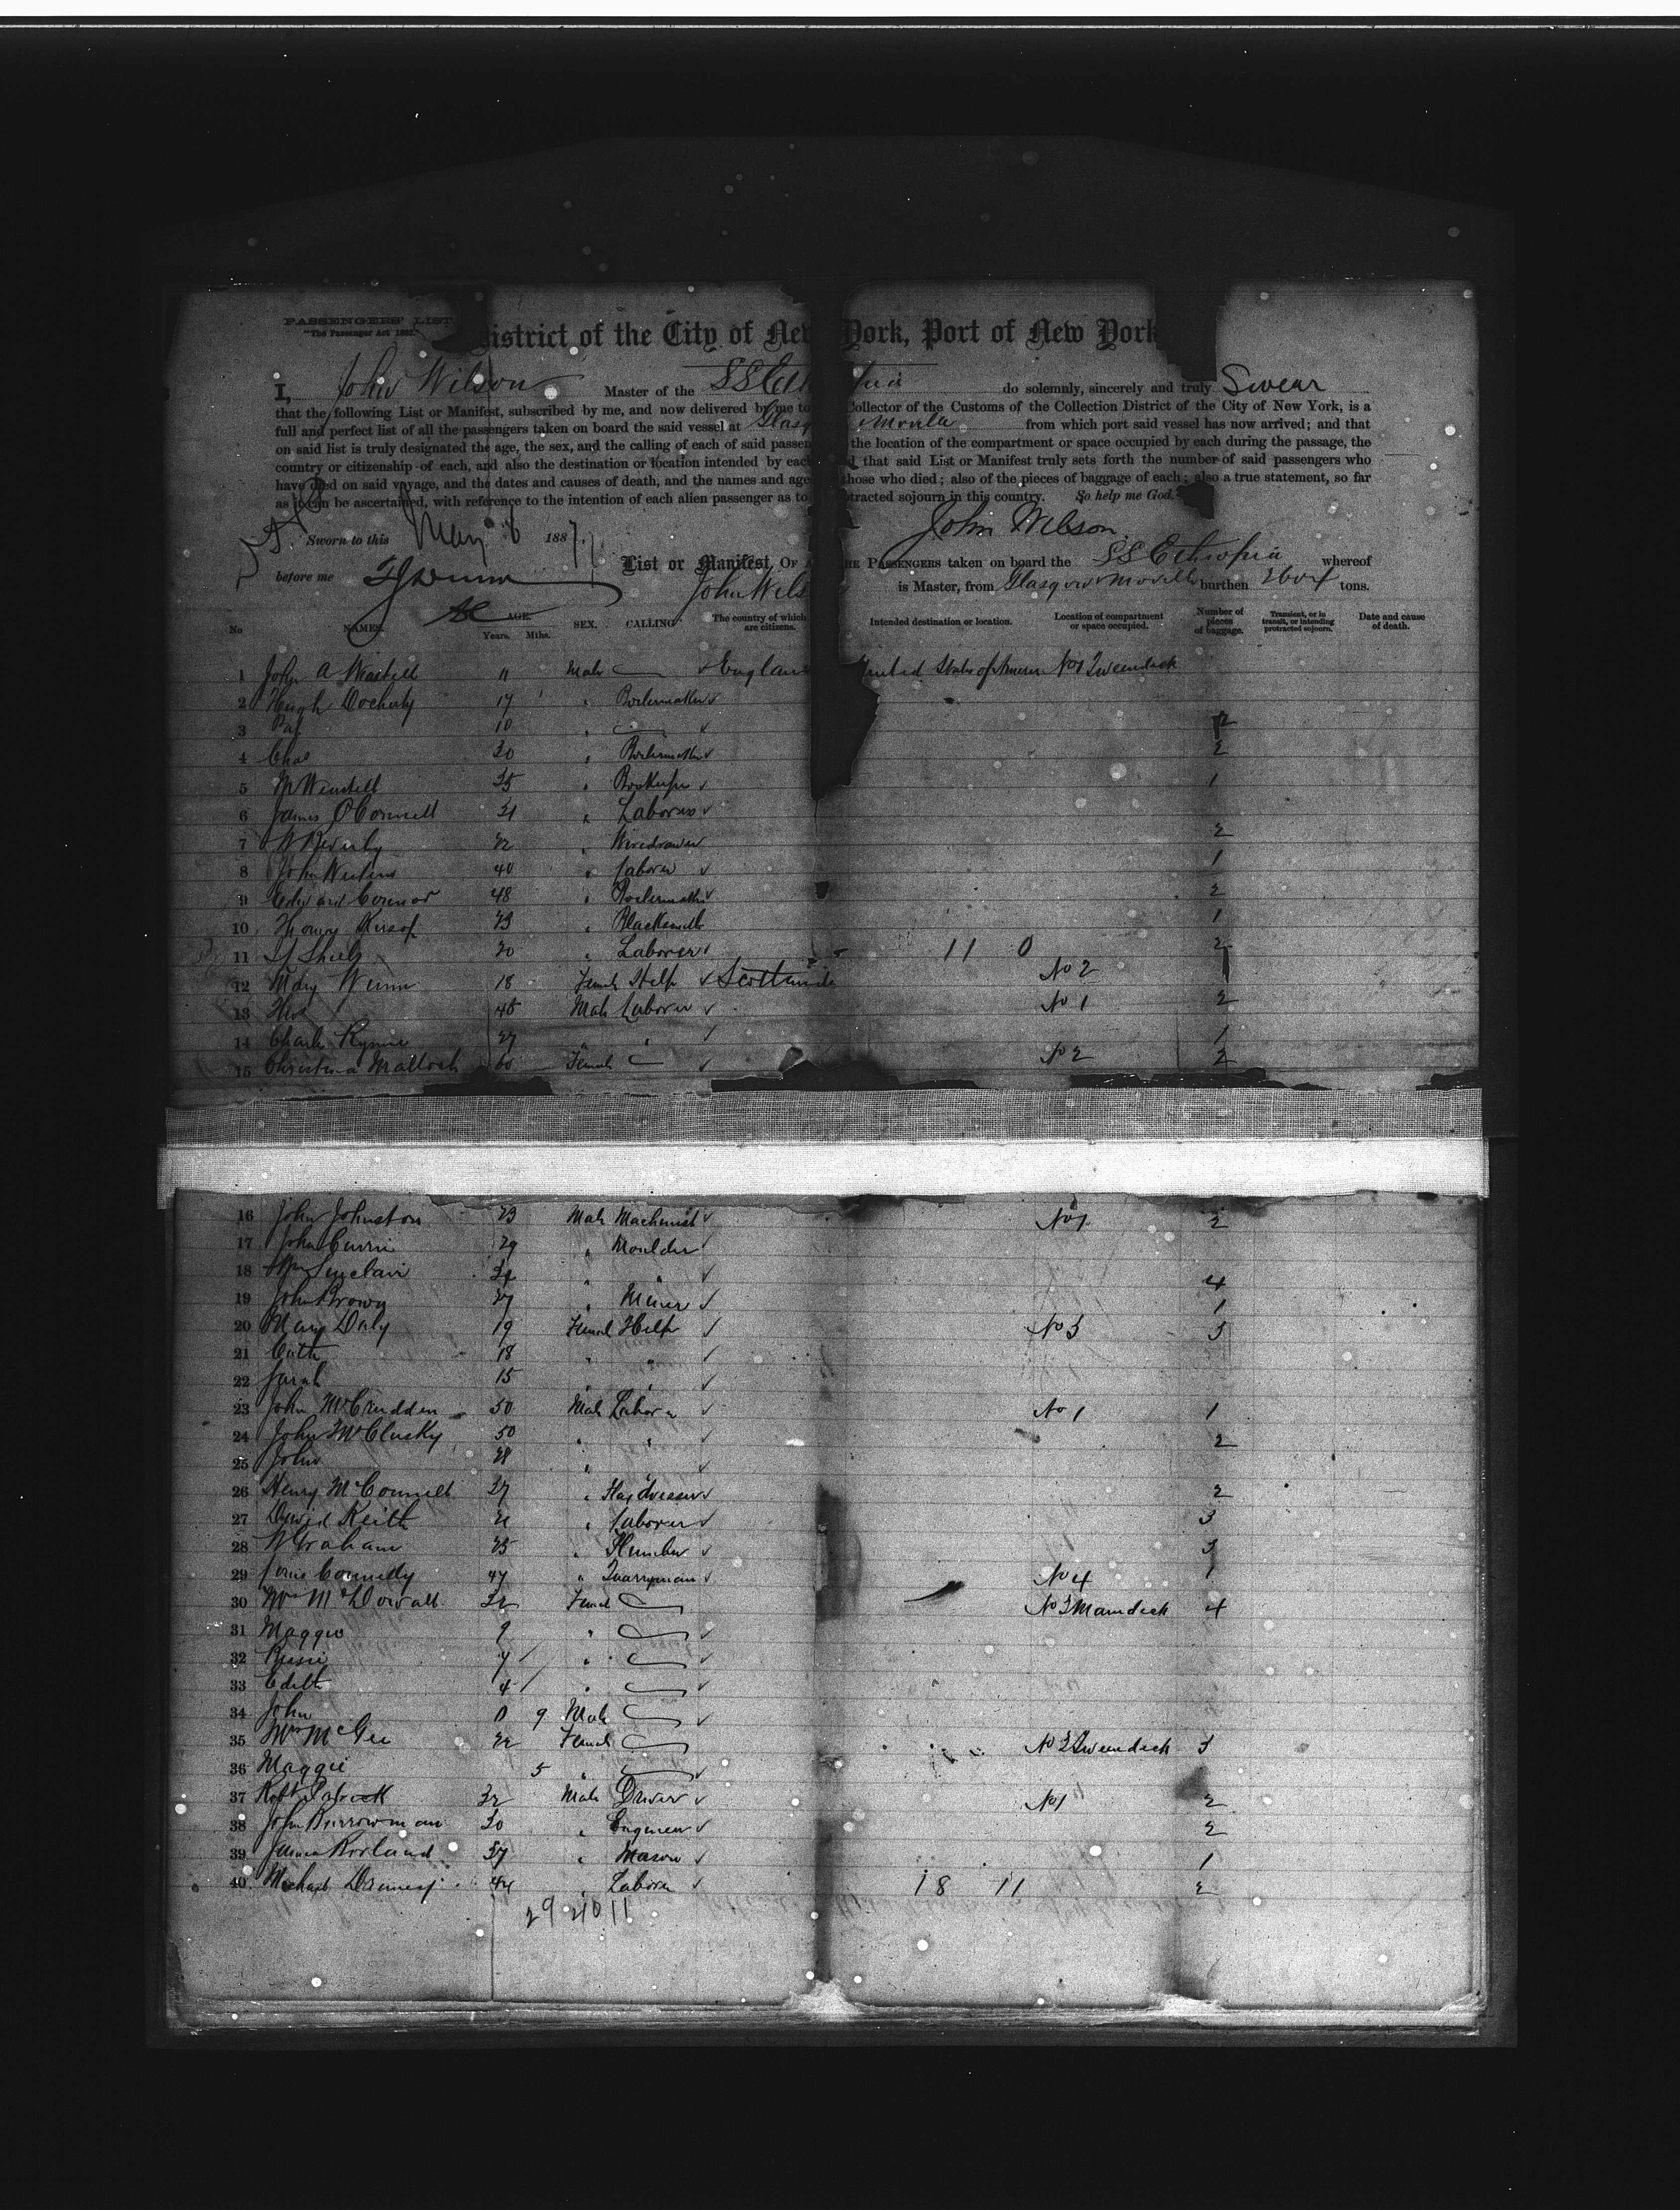 PASSENGERS' LIST.
"The Passenger Act 1882"
District of the City of New York, Port of New York
I, John Wilson Master of the SS Ethiopia do solemnly, sincerely and truly Swear
that the following List or Manifest, subscribed by me, and now delivered by me to Collector of the Customs of the Collection District of the City of New York, is a
full and perfect list of all the passengers taken on board the said vessel at Glasg Moville from which port said vessel has now arrived; and that
on said list is truly designated the age, the sex, and the calling of each of said passen the location of the compartment or space occupied by each during the passage, the
country or citizenship of each, and also the destination or location intended by each that said List or Manifest truly sets forth the number of said passengers who
have died on said voyage, and the dates and causes of death, and the names and age those who died; also of the pieces of baggage of each; also a true statement, so far
as it can be ascertained, with reference to the intention of each alien passenger as to protracted sojourn in this country. So help me God.
John Wilson
Sworn to this May 6 1887.
before me
List or Manifest, OF A THE PASSENGERS taken on board the SS Ethiopia whereof
John Wils is Master, from Glasgow & Moville burthen tons.
No NAMES. AGE. Years. Mths. SEX. CALLING. The country of which are citizens. Intended destination or location. Location of compartment or space occupied. Number of pieces of baggage. Transient, or in transit, or intending protracted sojourn. Date and cause of death.
1 John A 11 Male England United States of America No 1 Tweendeck
2 Hugh Docherty 17 Boilermaker
3 Pat 10 2
4 Chas 30 Boilermaker 2
5 35 1
6 James O'Connell 21 Laborer
7 22 Wiredrawer 2
8 John 40 Laborer 1
9 Edward Connor 48 Boilermaker 2
10 Thomas 23 Blacksmith 1
11 20 Laborer 11 0 2
12 Mary 18 Female Help Scotland No 2 1
13 48 Male Laborer No 1 2
14 Charles 27 " 1
15 Christina Malloch 60 Female No 2 2
16 John Johnston 23 Male Machinist No 1 2
17 John Currie 29 " Moulder
18 Wm Sinclair " " 4
19 John Brown 27 " Miner 1
20 Mary Daly 19 Female Help No 3 3
21 Cath 18 " "
22 Sarah 15 " "
23 John McCrudden 50 Male Laborer No 1 1
24 John McClusky 50 " " 2
25 John 28 " "
26 Henry McConnell 37 " Flaxdresser 2
27 David Keith 21 " Laborer 3
28 W Graham 25 " Plumber 3
29 Connelly 47 " Quarryman No 4 1
30 Mrs McDowall 32 Female No 3 Maindeck 4
31 Maggie 9 "
32 Bessie 7 "
33 Edith 4 "
34 John 0 9 Male
35 Mrs McGee 22 Female No 3 Tweendeck 3
36 Maggie 5 "
37 Robt Patrick 32 Male Driver No 1 2
38 John Burrowman 30 " Engineer 2
39 James 37 " Mason 1
40 Michael 44 " Laborer 18 11 2
29 21 0 11